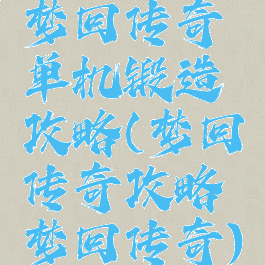 梦回传奇
单机锻造
攻略(梦回
传奇攻略
梦回传奇)